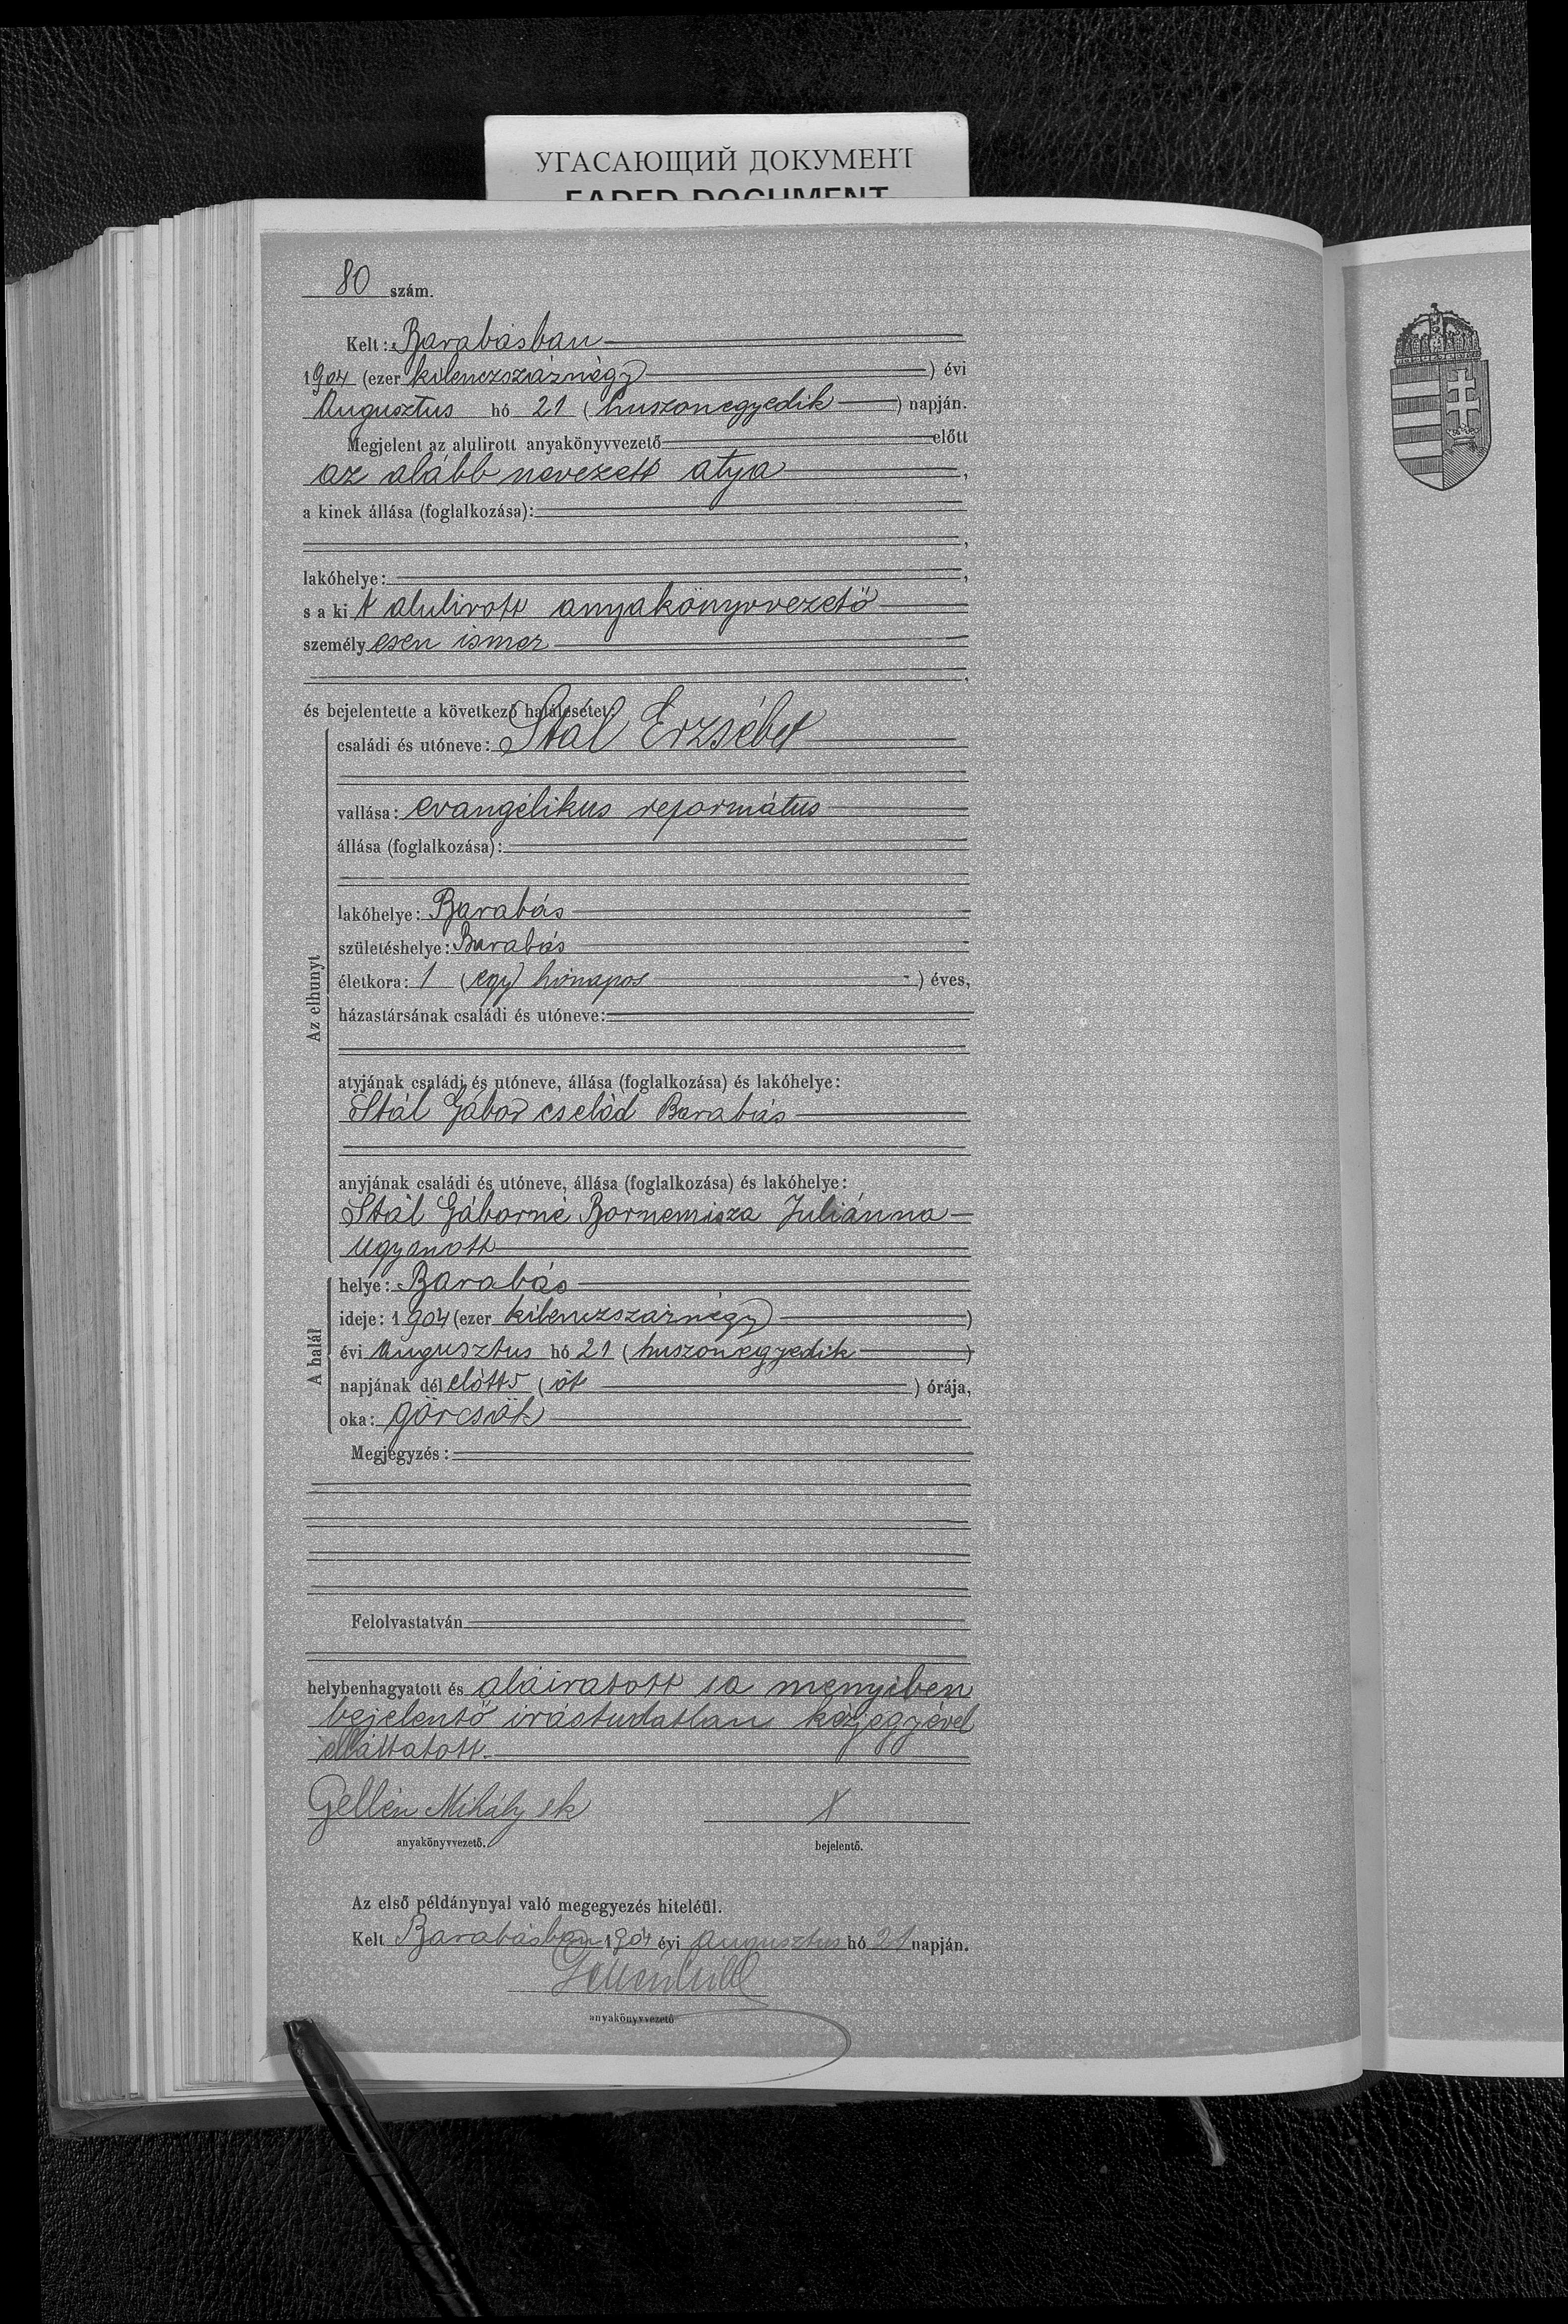 УГАСАЮЩИЙ ДОКУМЕНТ
FADED DOCUMENT
80 szám.
Kelt: Barabásban
1904 (ezer kilenczszáznégy) évi
Augusztus hó 21 (huszonegyedik) napján.
Megjelent az alulirott anyakönyvvezető előtt
az alább nevezett atya,
a kinek állása (foglalkozása):
lakóhelye:
s a ki t alulirott anyakönyvvezető
személy esen ismer
és bejelentette a következő halálesetet:
családi és utóneve: Stál Erzsébet
vallása: evangélikus református
állása (foglalkozása):
Az elhunyt
lakóhelye: Barabás
születéshelye: Barabás
életkora: 1 (egy) hónapos ) éves,
házastársának családi és utóneve:
atyjának családi és utóneve, állása (foglalkozása) és lakóhelye:
Stál Gábor cseléd Barabás
anyjának családi és utóneve, állása (foglalkozása) és lakóhelye:
Stál Gáborné Bornemisza Juliánna
Ugyanott
A halál
helye: Barabás
ideje: 1904 (ezer kilenczszáznégy)
évi Augusztus hó 21 (huszonegyedik)
napjának dél előtt 5 (öt) órája,
oka: görcsök
Megjegyzés:
Felolvastatván
helybenhagyatott és aláiratott s a menyiben
bejelentő irástudatlan kézjegyével
elláttatott.
Gellén Mihály sk X
anyakönyvvezető. bejelentő.
Az első példánynyal való megegyezés hiteléül.
Kelt Barabásban 1904 évi augusztus hó 21 napján.
anyakönyvvezető